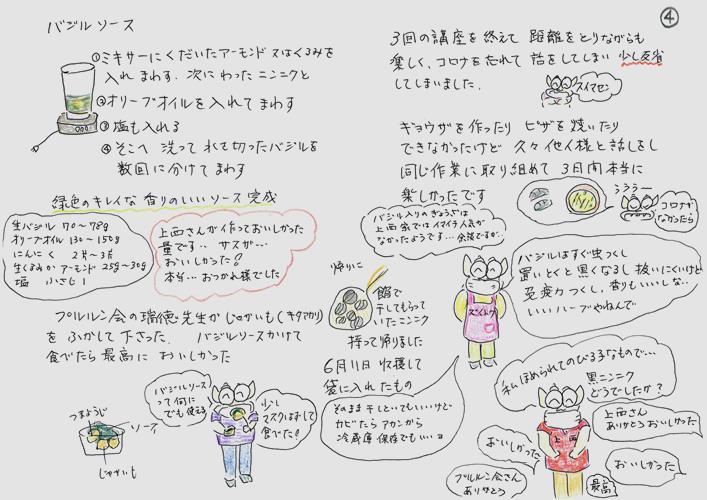 ④
バジルソース
①ミキサーにくだいたアーモンド又はくるみを
入れ まわす. 次に わった ニンニクと
②オリーブオイルを入れて まわす
③塩も入れる
④そこへ 洗って 水を切ったバジルを
数回に分けて まわす
緑色のキレイな 香りのいいソース 完成
生バジル 70〜78g
オリーブオイル 130〜150g
にんにく 2片〜3片
生くるみかアーモンド 25g〜30g
塩 小さじ1
上西さんが作っておいしかった
量です・・ サスが…
おいしかった!
本当… おつかれ様でした
プルルン会の瑞徳先生が じゃがいも(キタアカリ)
を ふかして 下さった. バジルソースかけて
食べたら 最高に おいしかった
つまようじ
ソース
じゃがいも
バジルソース
って何に
でも使える
少し
マスクはずして
食べた!
3回の講座を終えて 距離をとりながらも
楽しく、コロナを忘れて 話をしてしまい 少し反省
してしまいました.
スイマセン
ギョウザを作ったり ピザを焼いたり
できなかったけど 久々 他人様と 話しをし
同じ作業に取り組めて 3日間 本当に
楽しかったです
うううー
コロナが
なかったら
バジル入りのぎょうざは
上西家ではイマイチ人気が
なかったようです… 余談ですが…
帰りに
館で
干してもらって
いたニンニク
持って帰りました
6月11日 収穫して
袋に入れたもの
そのまま干しといてもいいけど
カビたら アカンから
冷蔵庫保存でもいいヨ
バジルはすぐ虫つくし
置いとくと黒くなるし 扱いにくいけど
免疫力つくし、香りもいいしな…
いいハーブやねんで
私ほめられてのびるるなもので…
黒ニンニク
どうでしたか?
上西
上西さん
ありがとう おいしかった
おいしかった
おいしかった
プルルン会さん
ありがとう
最高